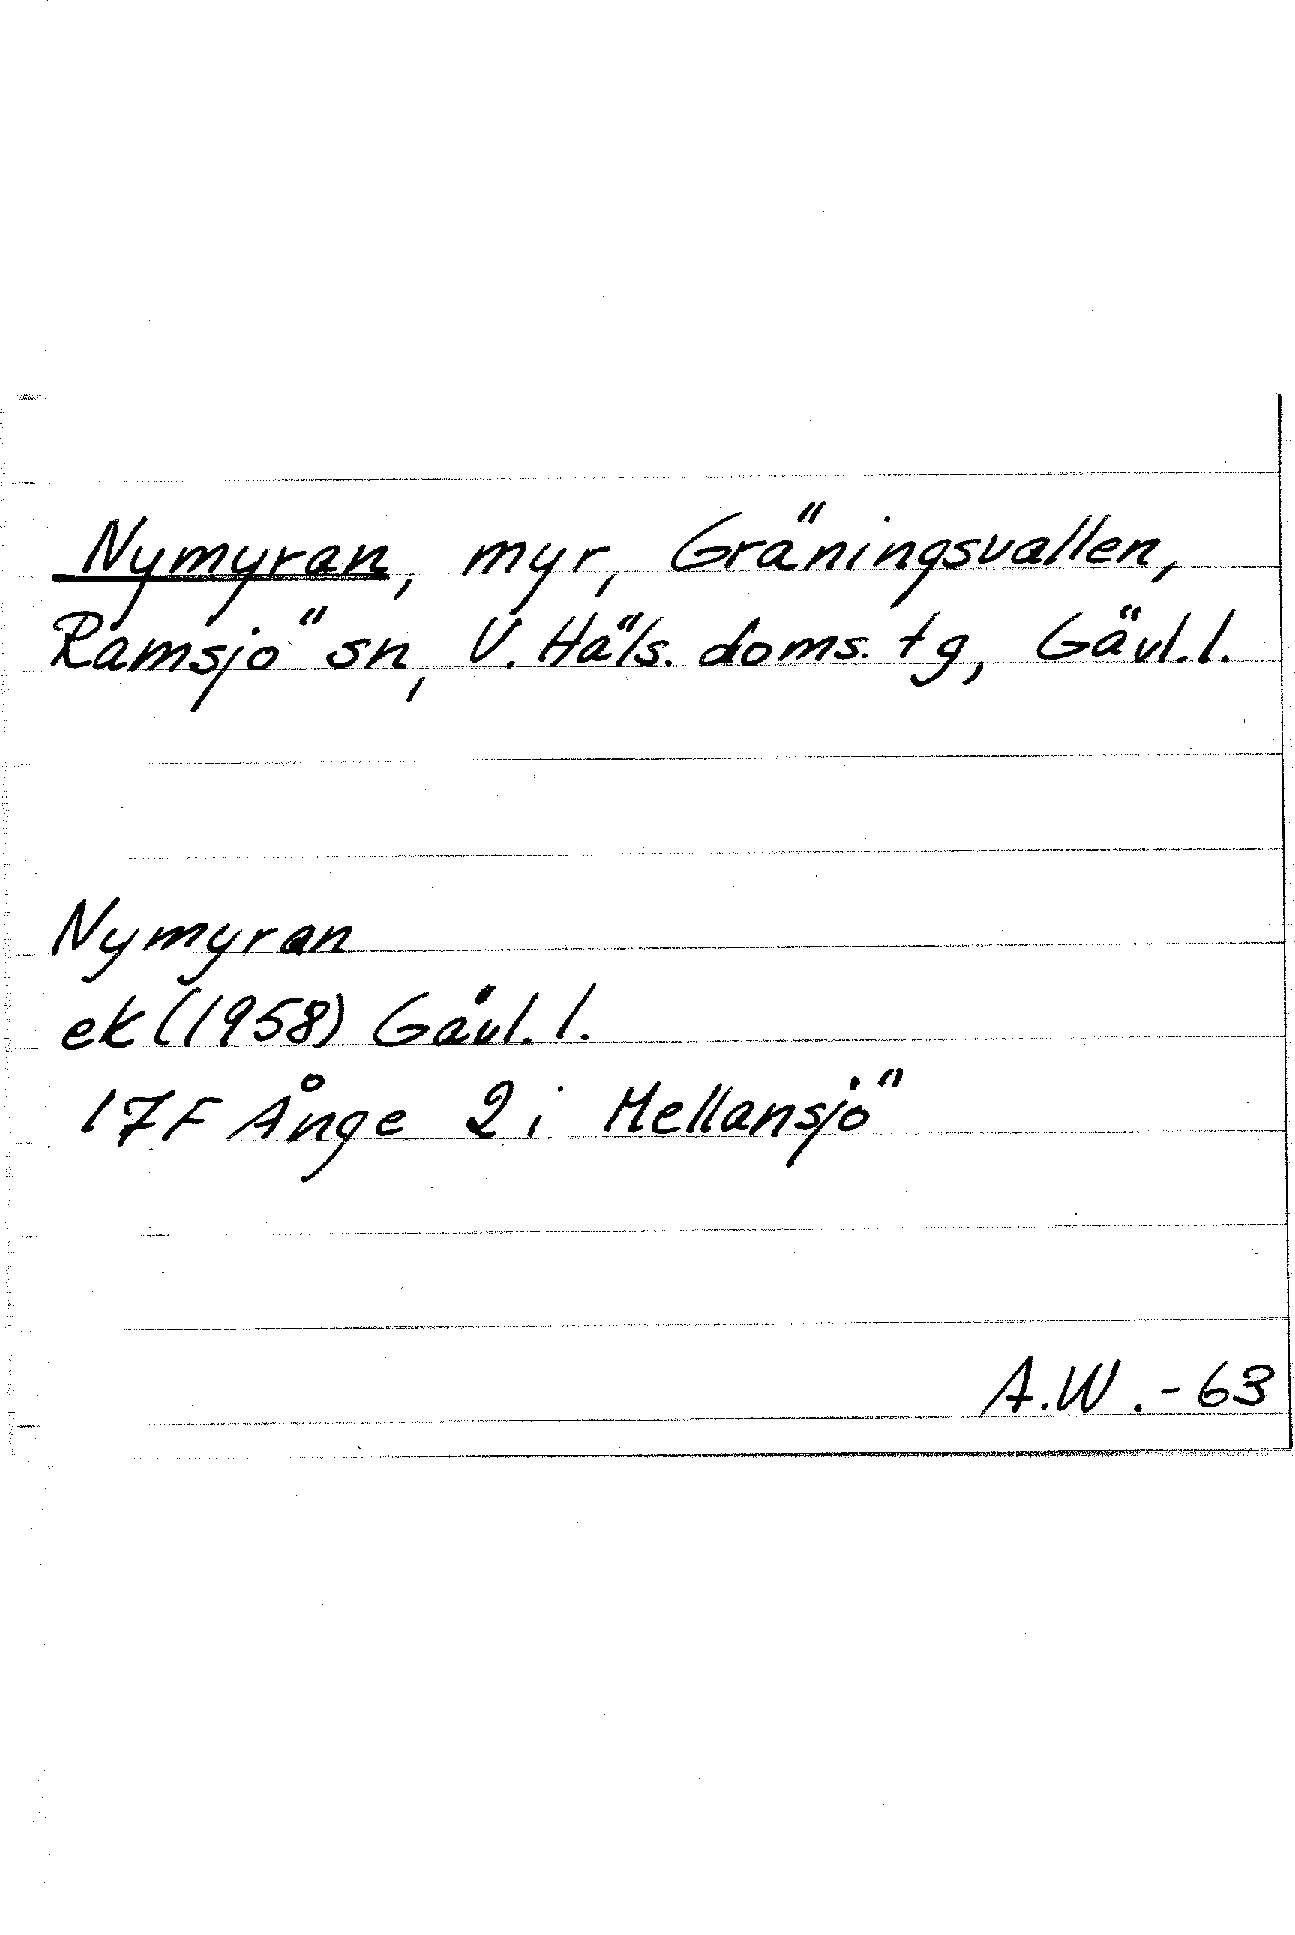 Nymyran, myr, Gräningsvallen,
Ramsjö sn, V. Häls. doms. tg, Gävl. l.
Nymyran
ek (1958) Gävl. l.
17F Ånge 2i Mellansjö
A.W. -63